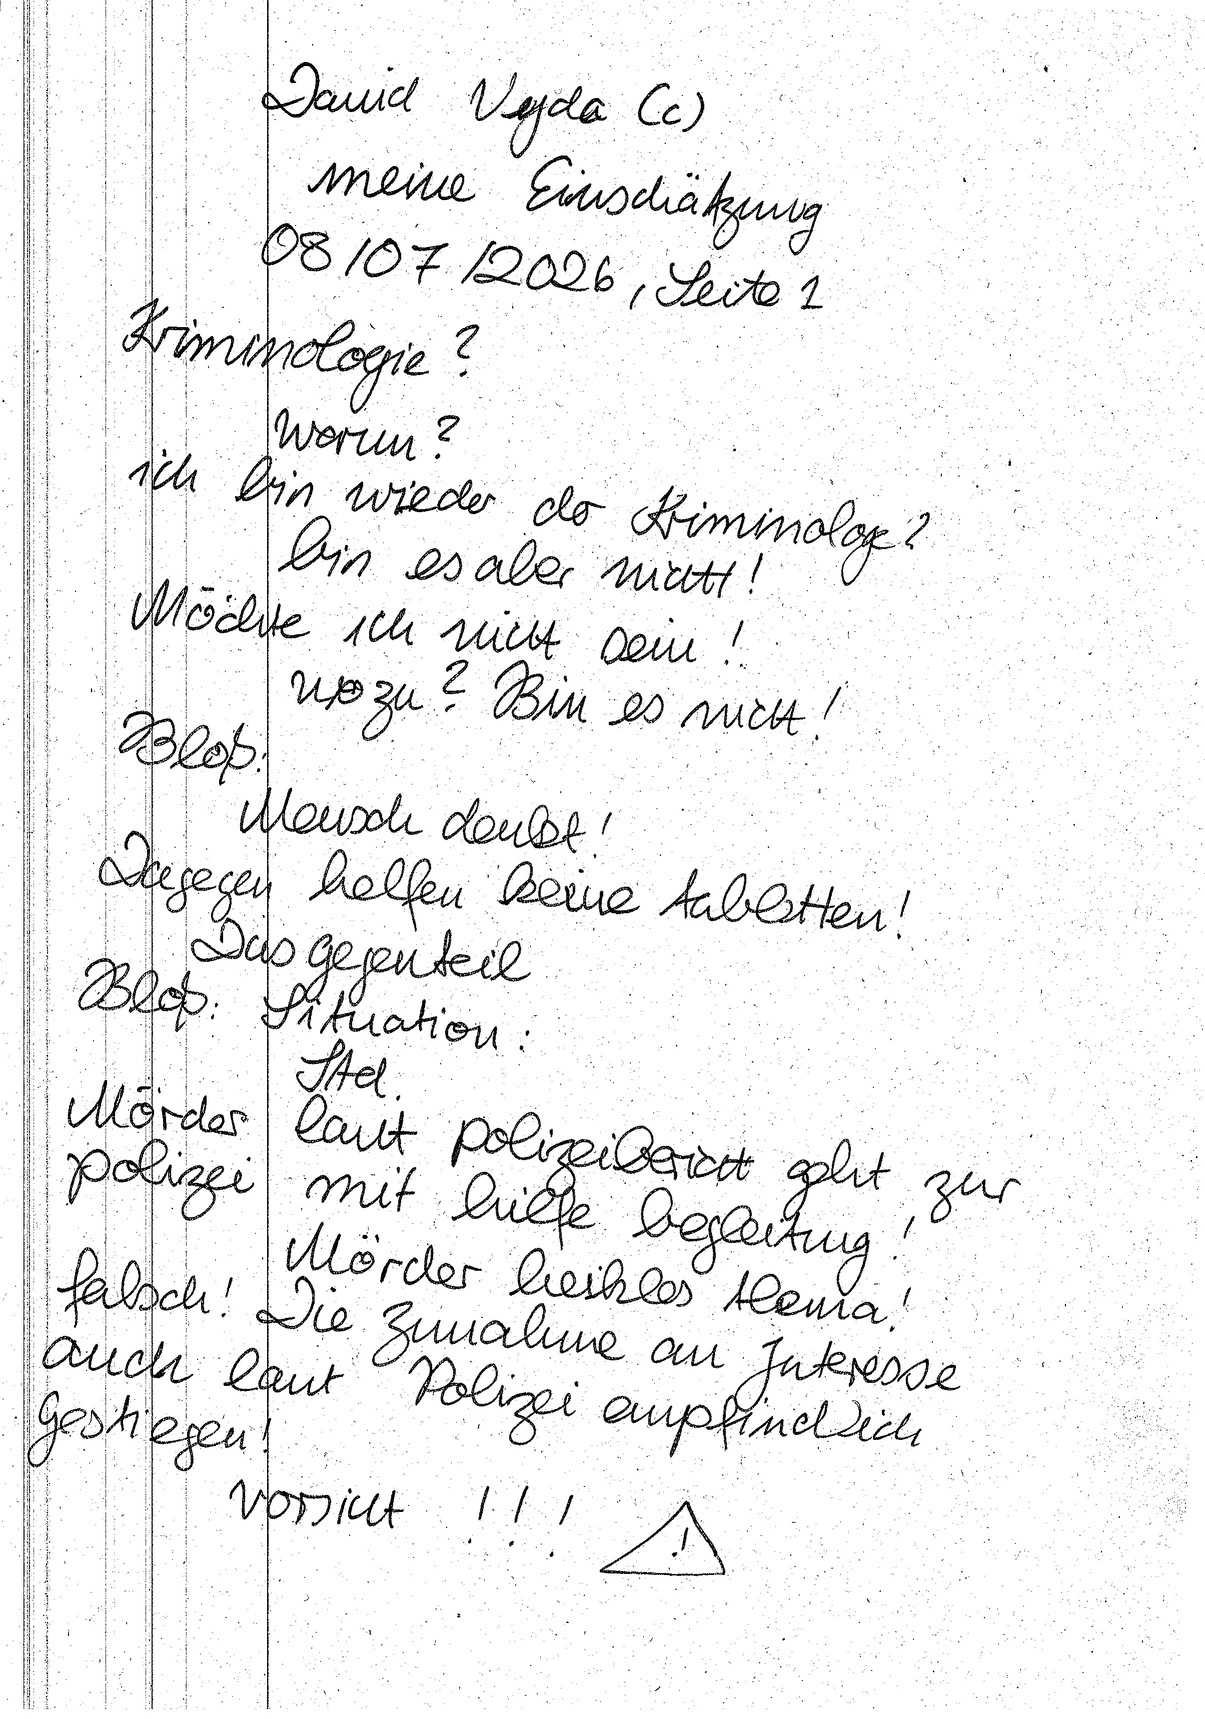 David Vyda (c)
meine Einschätzung
08/07/2026, Seite 1
Kriminologie?
Worum?
ich bin wieder da Kriminologe?
bin es aber nicht!
Möchte ich nicht sein!
wozu? Bin es nicht!
Bloß:
Mensch denkt!
Dagegen helfen keine tabletten!
Das gegenteil
Bloß: Situation:
Mörder laut polizeibericht geht zur
polizei mit hilfe begleitung!
Mörder heikles thema!
falsch! Die Zunahme an Interesse
auch laut Polizei empfindlich
Gestiegen!
Vorsicht !!!
!